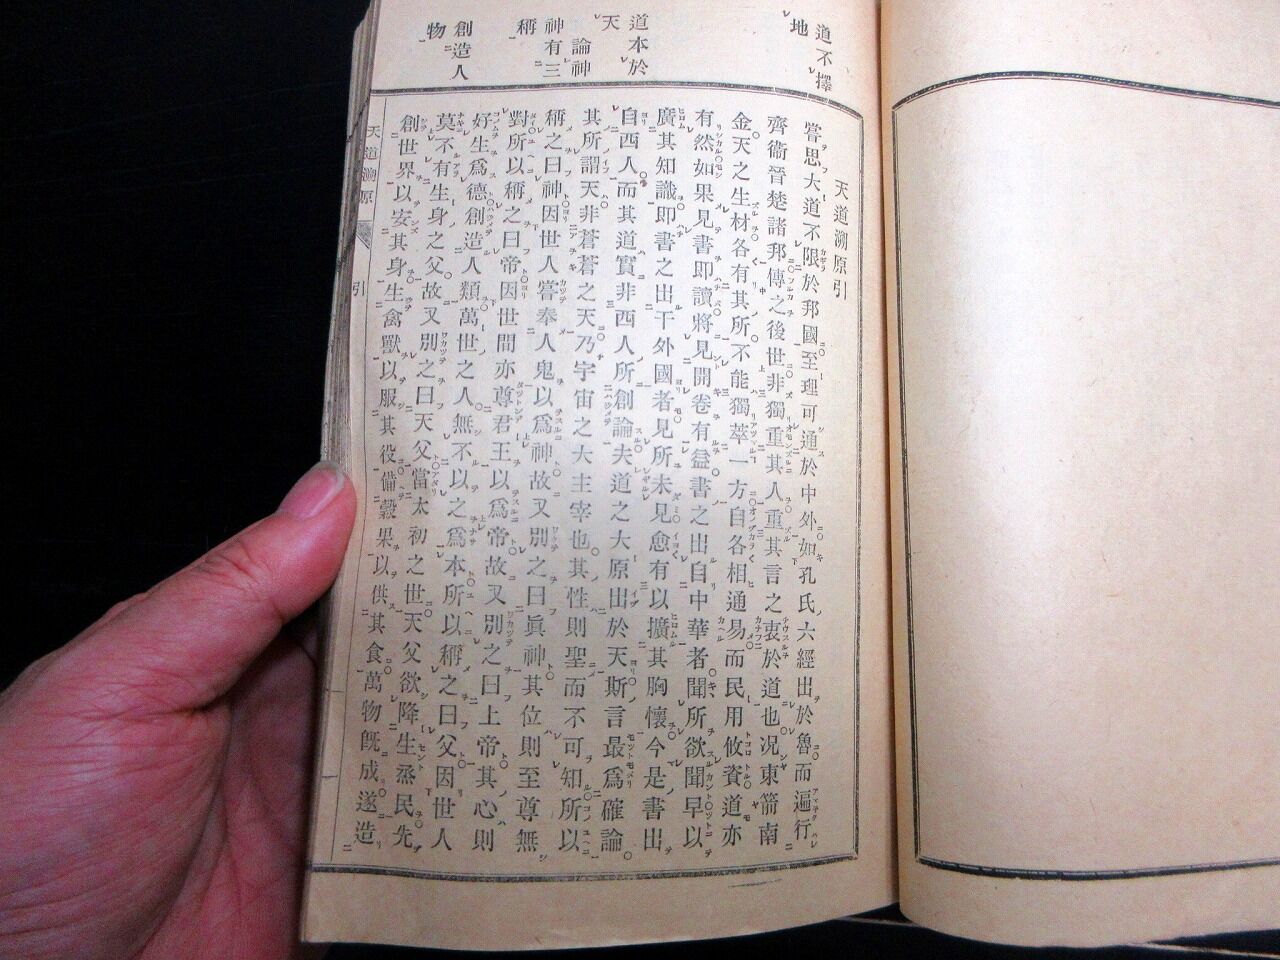 道不擇
地
道本於
天
論神
神有三
稱
創造人
物
天道溯原引
嘗思大道不限於邦國至理可通於中外如孔氏六經出於魯而遍行
齊衞晉楚諸邦傳之後世非獨重其人重其言之衷於道也况東箭南
金天之生材各有其所不能獨萃一方自各相通易而民用攸資道亦
有然如果見書即讀將見開卷有益書之出自中華者聞所欲聞早以
廣其知識即書之出于外國者見所未見愈有以擴其胸懷今是書出
自西人而其道實非西人所創論夫道之大原出於天斯言最爲確論
其所謂天非蒼蒼之天乃宇宙之大主宰也其性則聖而不可知所以
稱之曰神因世人嘗奉人鬼以爲神故又別之曰眞神其位則至尊無
對所以稱之曰帝因世間亦尊君王以爲帝故又別之曰上帝其心則
好生爲德創造人類萬世之人無不以之爲本所以稱之曰父因世人
莫不有生身之父故又別之曰天父當太初之世天父欲降生烝民先
創世界以安其身生禽獸以服其役備穀果以供其食萬物既成遂造
天道溯原
引